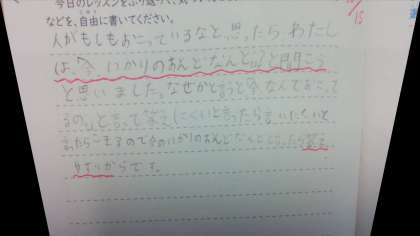 今日のレッスンをふり返って、
などを、自由に書いてください。
人がもしもおこっているなと思ったら わたし
は「今 いかりのおんどなんど?」と聞こう
と思いました。なぜかと言うと今なんでおこって
るの」と言って答えにくいと言ったら言いたくないと
言ったらこまるので今のいかりのおんどなんどと言ったら答え
やすいからです。